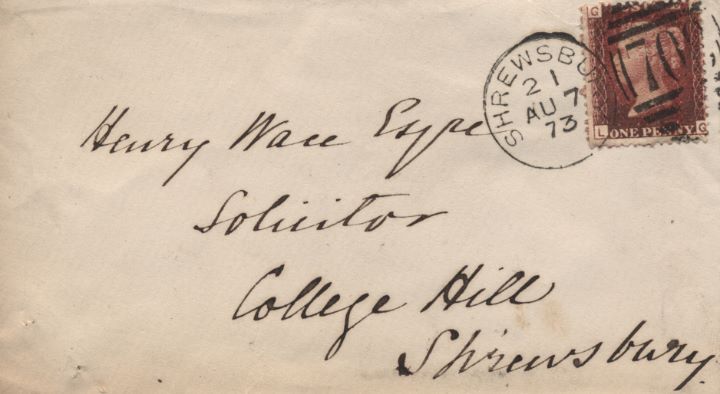 Henry Wace Esqre
Solicitor
College Hill
Shrewsbury
SHREWSBU
21
AU 7
73
G
L
ONE PENNY
G